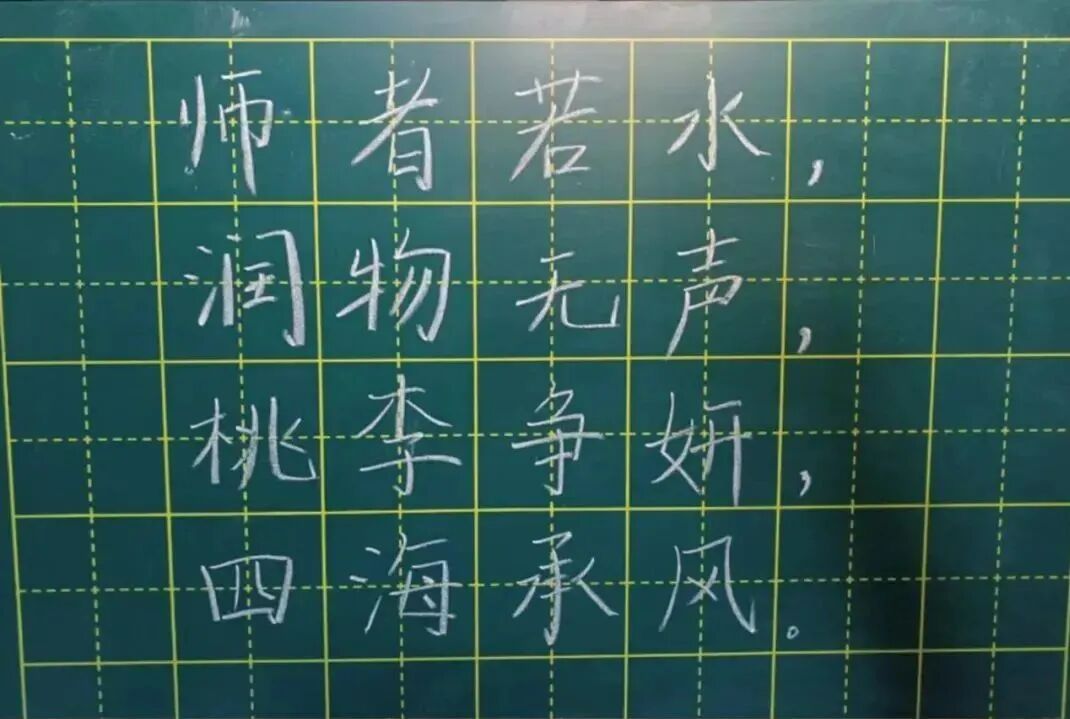 师者若水，
润物无声，
桃李争妍，
四海承风。